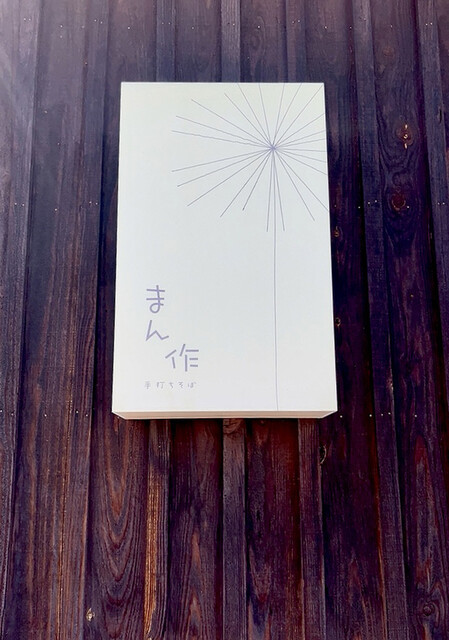 まん作
手打ちそば